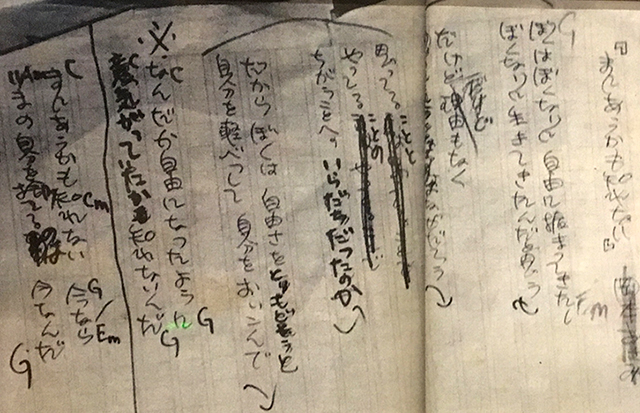 『まんざらかも知れない』
G
ぼくはぼくなりに 自由に振るまってきたし
ぼくなりに生きてきたんだと思う
Em
だけど
だけど理由もなく
思ってることと
やってることの
ちがうことへの いらだちだったのか
だからぼくは 自由さをとりもどそうと
自分を軽べつして 自分をおいこんで
※ C
なんだか自由になったように G
C
意気がっていたかも知れないんだ G
C Cm G/Em
まんざらかも知れない 今なら
Am
いまの自分を捨てる 今なんだ G